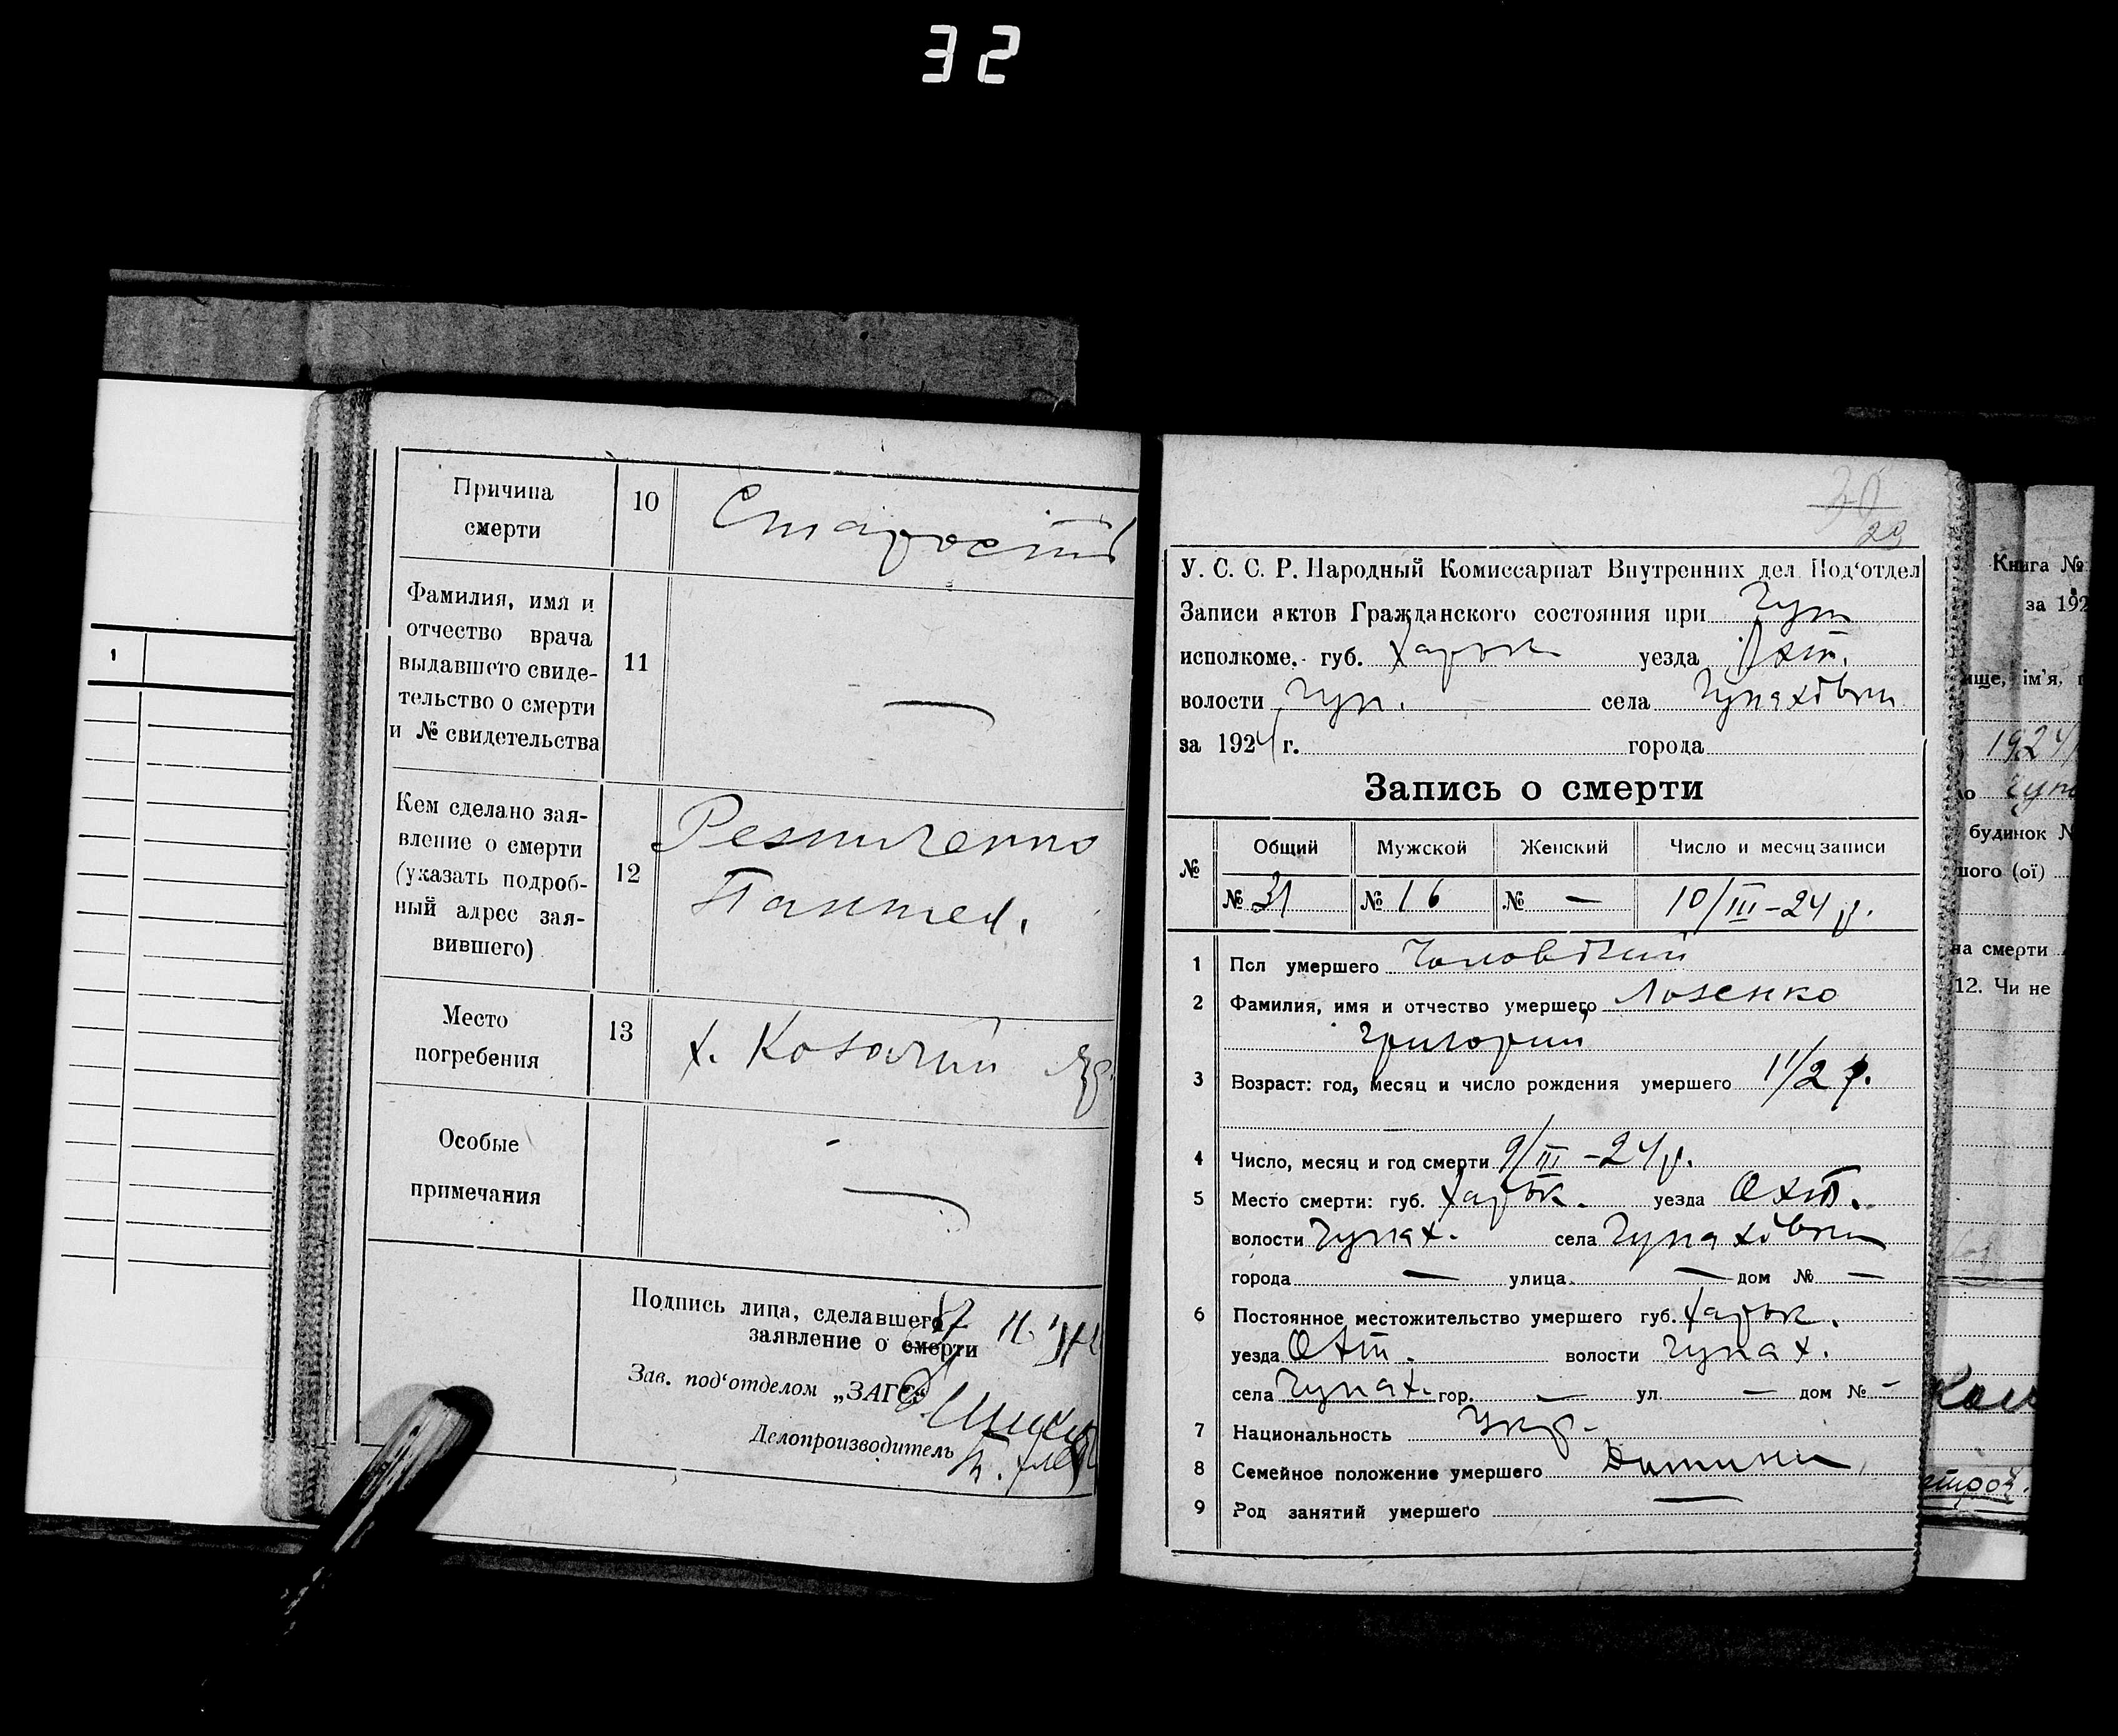 32
Причина
смерти
10
Старость
Фамилия, имя и
отчество врача
выдавшего свиде-
тельство о смерти
и № свидетельства
11
—
Кем сделано зая-
вление о смерти
(указать подроб-
ный адрес зая-
вившего)
12
Пантел.
Место
погребения
13
х. Козачий Яр.
Особые
примечания
—
Подпись лица, сделавшего
заявление о смерти
Зав. под‘отделом „ЗАГС“
Делопроизводитель
1
30
29
У. С. С. Р. Народный Комиссариат Внутренних дел Под‘отдел
Записи актов Гражданского состояния при Чуп
исполкоме. губ. Харьк уезда Охт.
волости Чуп. села Чупахівки
за 1924 г. города
Запись о смерти
№ Общий Мужской Женский Число и месяц записи
№ 31 № 16 № — 10/III-24 р.
1 Пол умершего Чоловічий
2 Фамилия, имя и отчество умершего Лозенко
Григорий
3 Возраст: год, месяц и число рождения умершего 1 1/2 р.
4 Число, месяц и год смерти 9/III-24 р.
5 Место смерти: губ. Харьк. уезда Охт.
волости Чупах. села Чупахівки
города — улица — дом № —
6 Постоянное местожительство умершего губ. Харьк.
уезда Охт. волости Чупах.
села Чупах. гор. — ул. — дом № —
7 Национальность Укр.
8 Семейное положение умершего Дитина
9 Род занятий умершего —
Книга №
за 192
ище, ім'я, п
1924
будинок №
ного (ої)
на смерти
12. Чи не